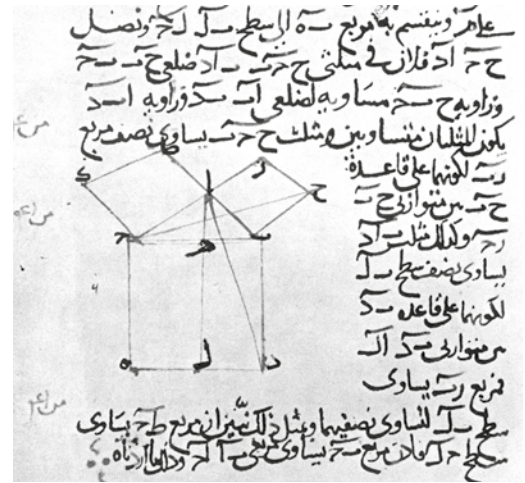 وينقسم به مربع ب ه الى سطحى ب ل ل ح ونصل
ح ح ا د فلان في مثلثى ح ح ب ب ا د ضلعى ح ب ب ح
وزاويه ح ب ح مساويه لضلعى ا ب ب د وزاويه ا ب د
يكون المثلثان متساويين ومثلث ح ح ب يساوى نصف مربع
ر ب لكونهما على قاعدة
ح ب بين متوازيى ح ب
ر ح وكذلك مثلث ب ا د
يساوى نصف سطح ب ل
لكونهما على قاعده ب د
بين متوازيى ب د ا ل
فمربع ر ب يساوى
سطح ب ل لتساوى نصفيهما وبمثل ذلك نبين ان مربع ط ح يساوى
سطح ح ل فاذن مربع ب ح يساوى مربعى ب ا ا ح وذلك ما اردناه
ا
ر
ح
ح
ب
ه
ل
د